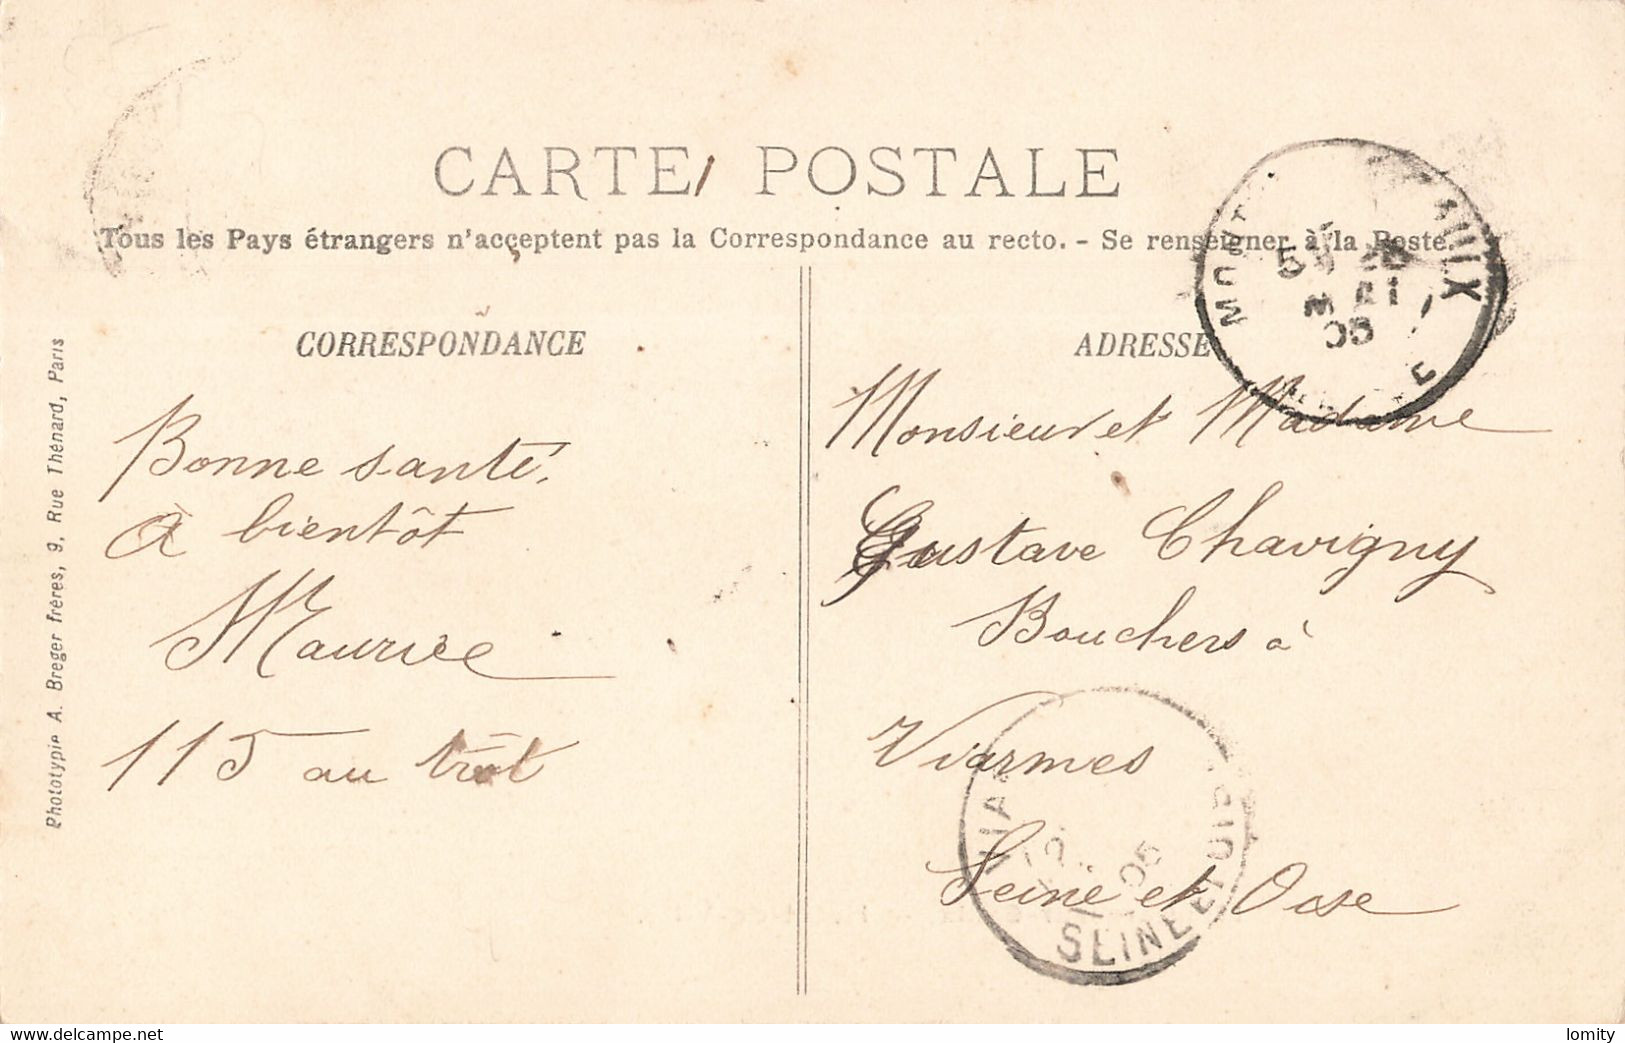 CARTE POSTALE
Tous les Pays étrangers n'acceptent pas la Correspondance au recto. - Se renseigner à la Poste.
CORRESPONDANCE
Bonne santé.
A bientôt
Maurice
115 au trot
Phototypie A. Breger frères, 9, Rue Thénard, Paris
ADRESSE
Monsieur et Madame
Gustave Chavigny
Bouchers à
Viarmes
Seine et Oise
MAI
05
05
SEINE
www.delcampe.net
lomity